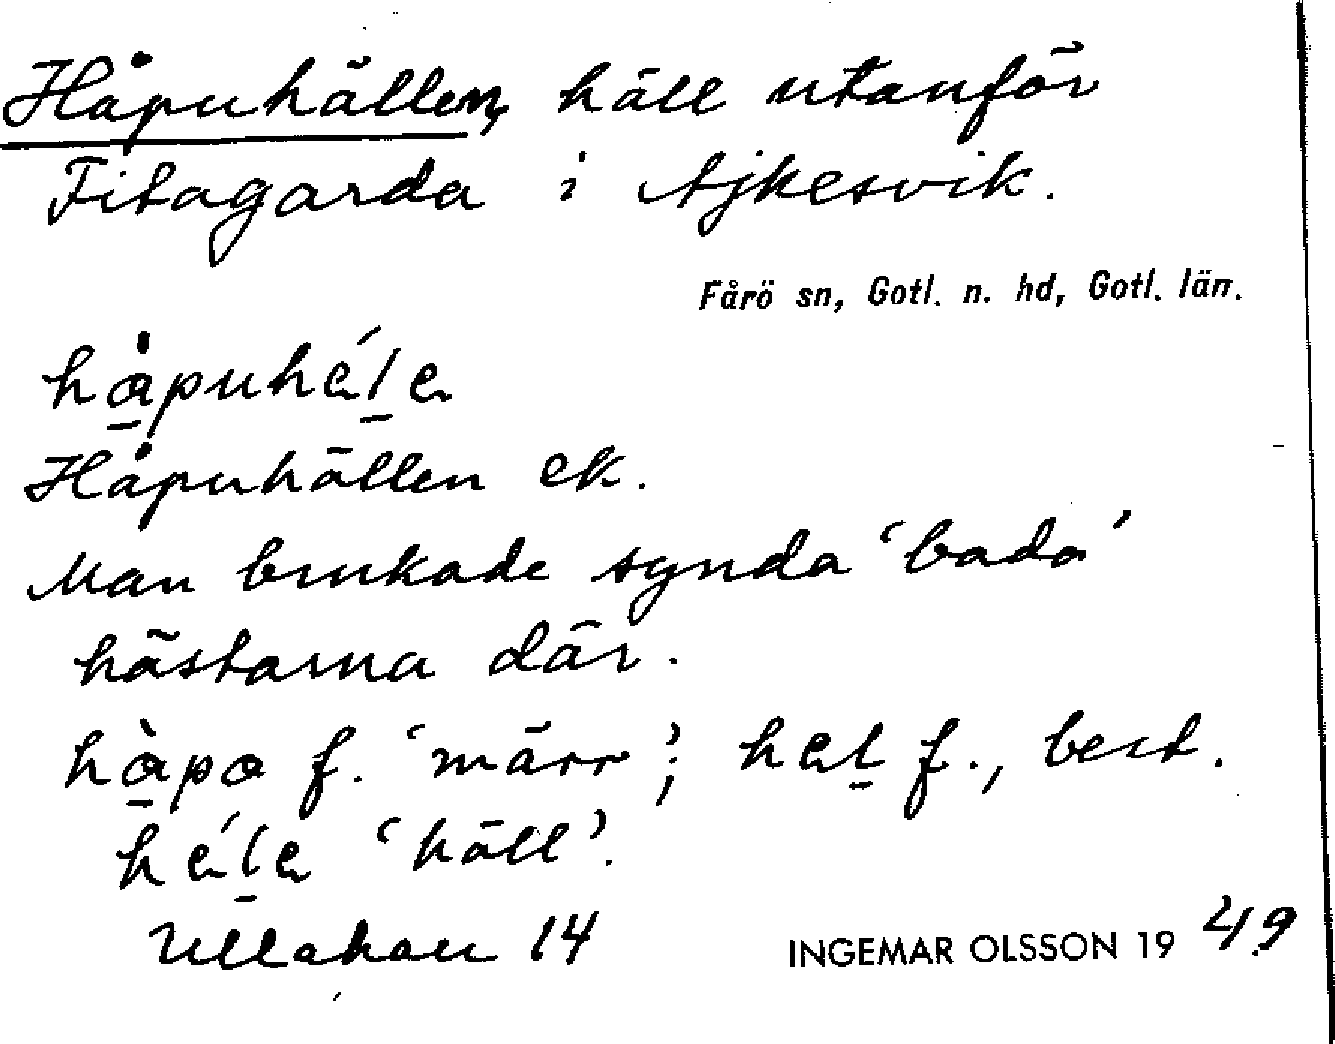 Håpuhällen, häll utanför
Fitagarda i Ajkesvik.
Fårö sn, Gotl. n. hd, Gotl. län.
hå̱puhéḻe
Håpuhällen ek.
Man brukade synda 'bada'
hästarna där.
hå̱pa f. 'märr'; heḻ f., best.
héḻe 'häll'.
Ullahau 14
INGEMAR OLSSON 1949